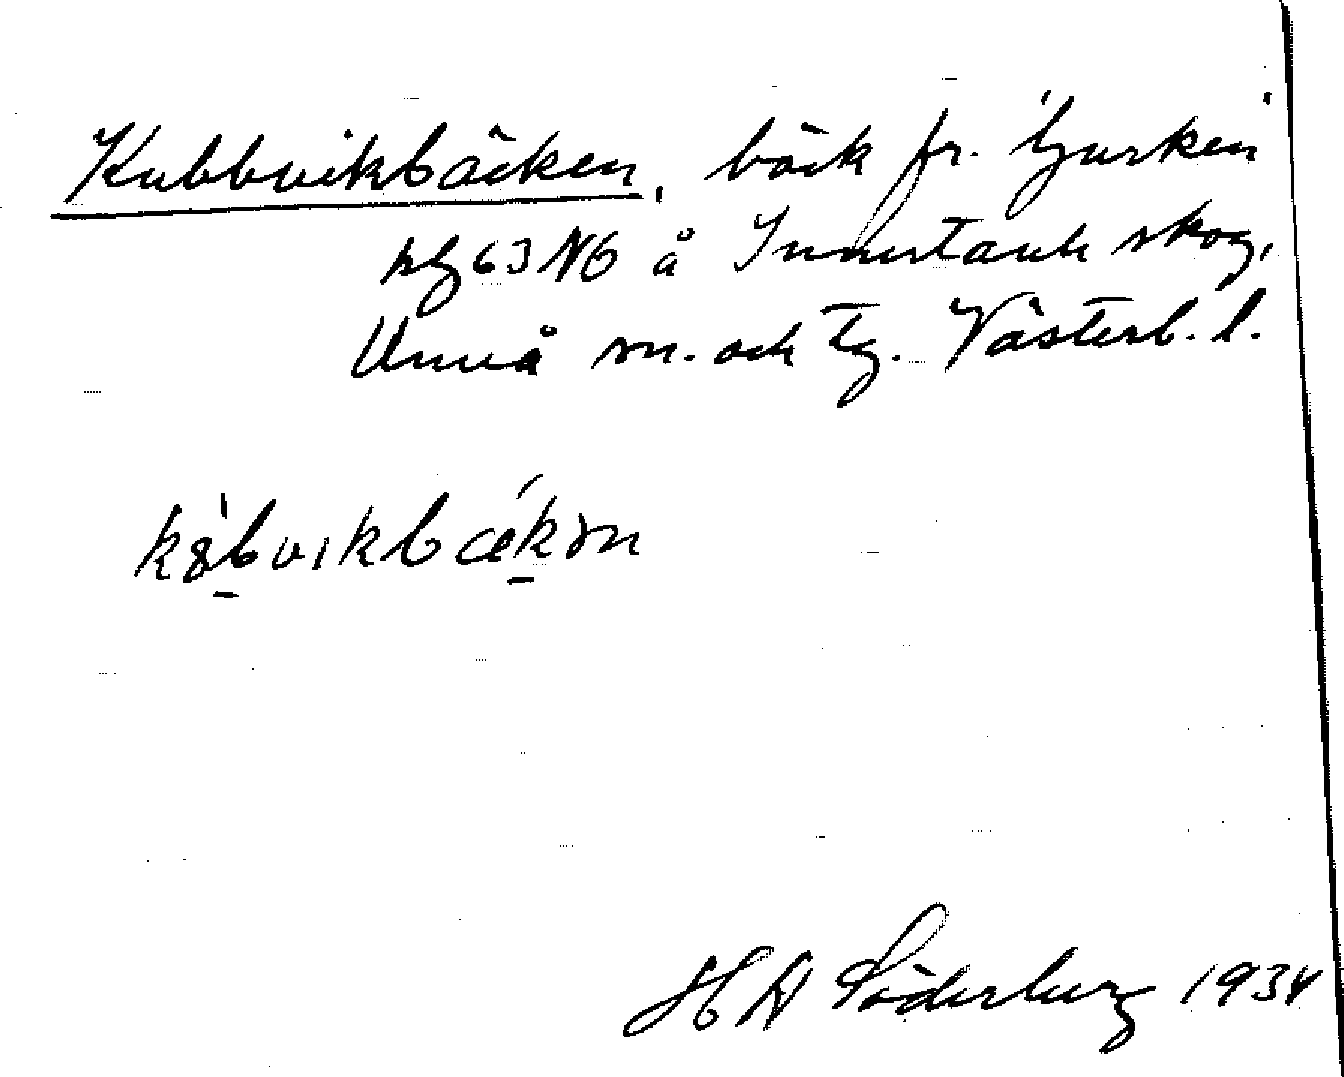 Kubbvikbäcken, bäck fr. Tjursken
bl 63 NG å Innertavle skog,
Umeå sn. och tg. Västerb. l.
kȣbvikbækən
H A Söderberg 1934